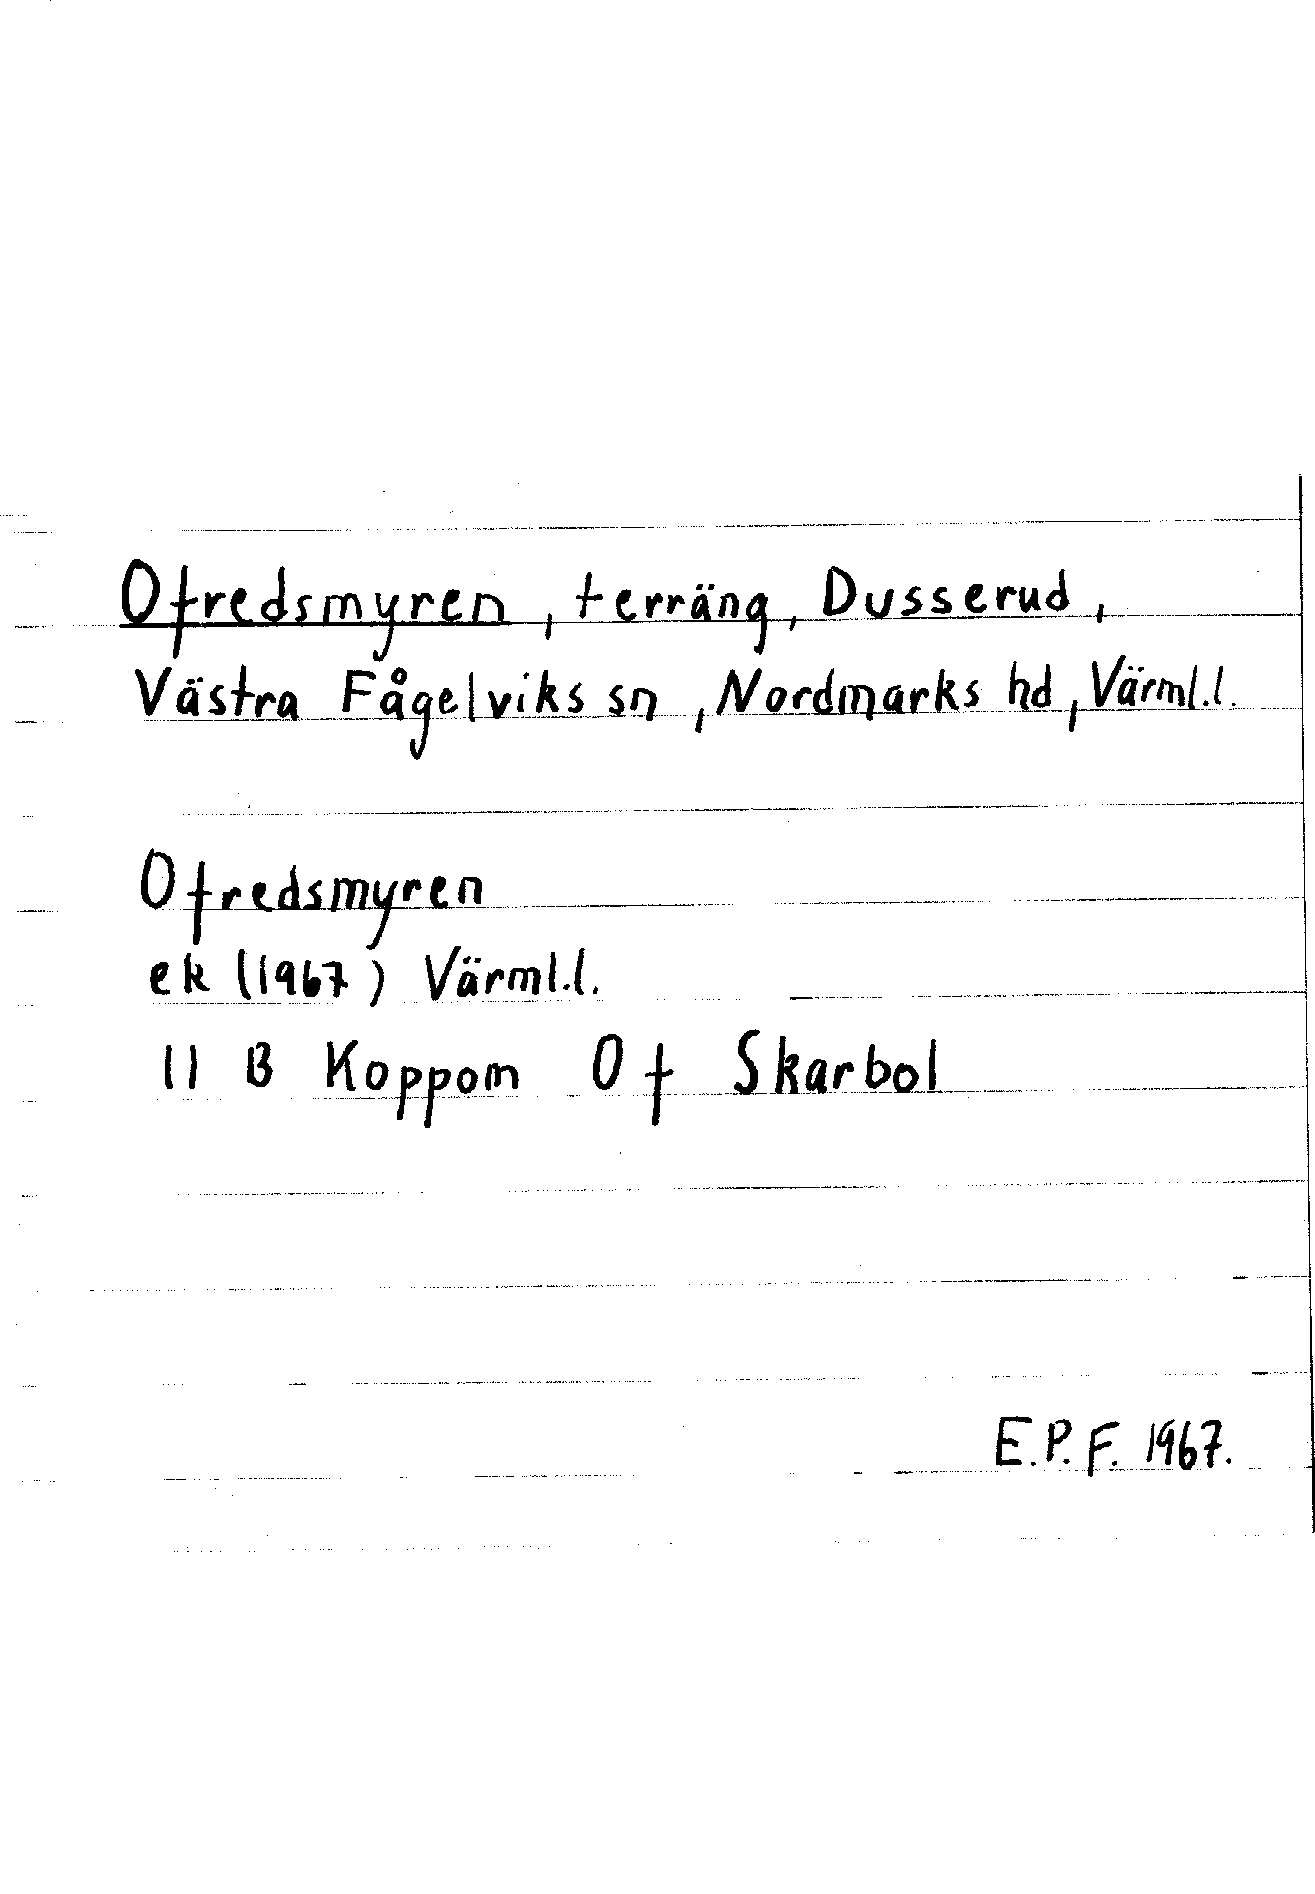 Ofredsmyren, terräng, Dusserud,
Västra Fågelviks sn, Nordmarks hd, Värml.l.
Ofredsmyren
ek (1967) Värml.l.
11 B Koppom 0 f Skarbol
E.P.F. 1967.